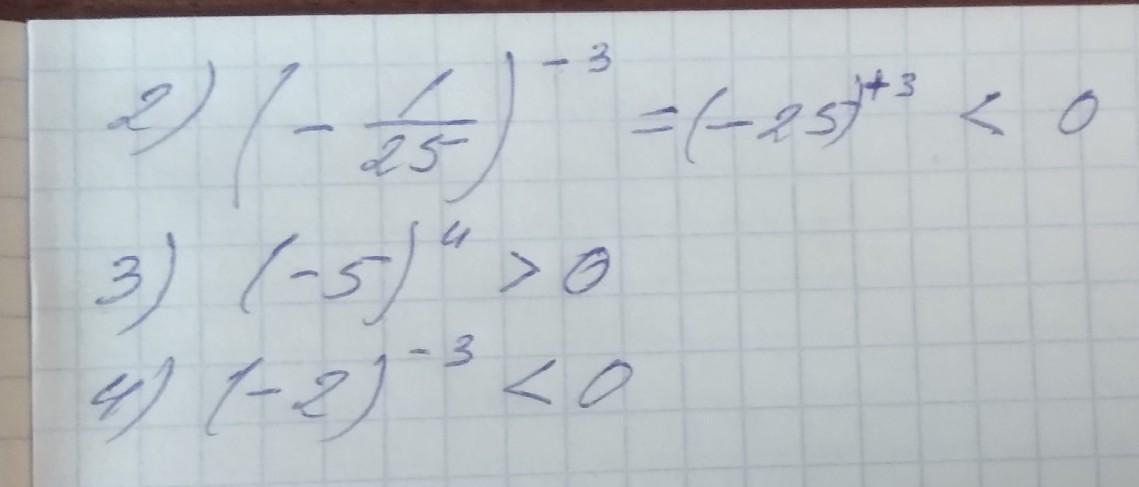 2) (-1/25)^-3 = (-25)^+3 < 0
3) (-5)^4 > 0
4) (-2)^-3 < 0